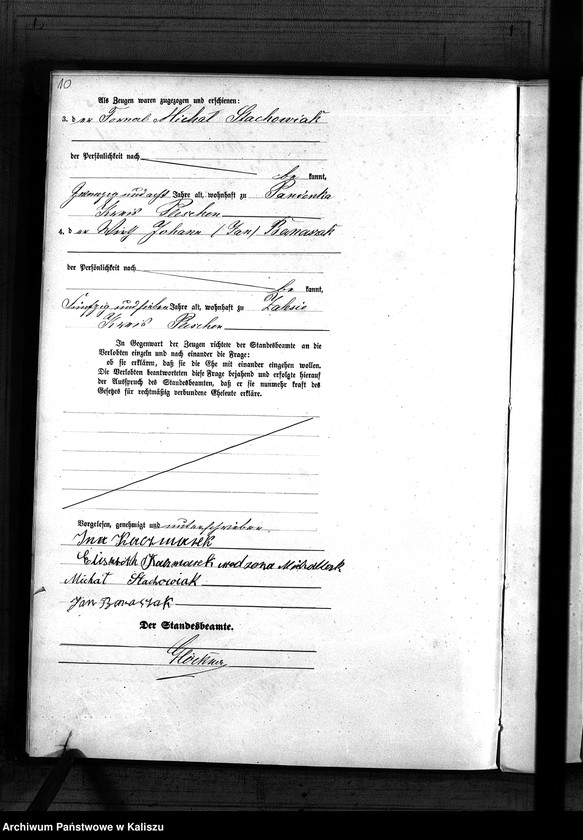 10
Als Zeugen waren zugezogen und erschienen:
3. der Fornal Michał Stachowiak
der Persönlichkeit nach
be kannt,
zwanzig und acht Jahre alt, wohnhaft zu Panienka
Kreis Pleschen
4. der Wirth Johann (Jan) Banaszak
der Persönlichkeit nach
be kannt,
fünfzig und sieben Jahre alt, wohnhaft zu
Kreis Pleschen
In Gegenwart der Zeugen richtete der Standesbeamte an die
Verlobten einzeln und nach einander die Frage:
ob sie erklären, daß sie die Ehe mit einander eingehen wollen.
Die Verlobten beantworteten diese Frage bejahend und erfolgte hierauf
der Ausspruch des Standesbeamten, daß er sie nunmehr kraft des
Gesetzes für rechtmäßig verbundene Eheleute erkläre.
Vorgelesen, genehmigt und unterschrieben
Kaczmarek
Kaczmarek
Michał Stachowiak
Jan Banaszak
Der Standesbeamte.
Glöckner
Archiwum Państwowe w Kaliszu